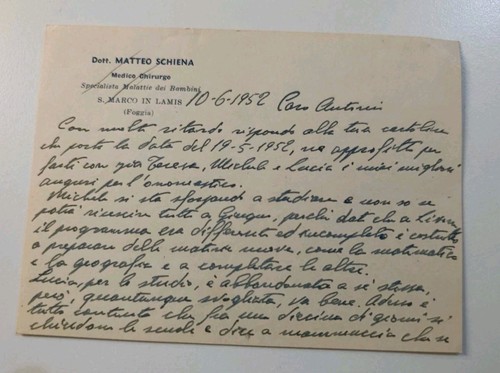 Dott. MATTEO SCHIENA
Medico Chirurgo
Specialista Malattie dei Bambini
S. MARCO IN LAMIS
(Foggia)
10-6-1952 Caro Antonio
Con molto ritardo rispondo alla tua cartolina
che porta la data del 19-5-1952, ne approfitto per
farti con zia Teresa, Michele e Lucia i miei migliori
auguri per l'onomastico.
Michele si sta sforzando a studiare e non so se
potrà riuscire tutto a Giugno, perché dato che a
il programma era differente ed incompleto è costretto
a preparare delle materie nuove, come la matematica
e la geografia e a completare le altre.
Lucia, per lo studio, è abbandonata a se stessa,
però, quantunque svogliata, va bene. Adesso è
tutta contenta che fra una diecina di giorni si
chiudono le scuole e dice a mammuccia che se